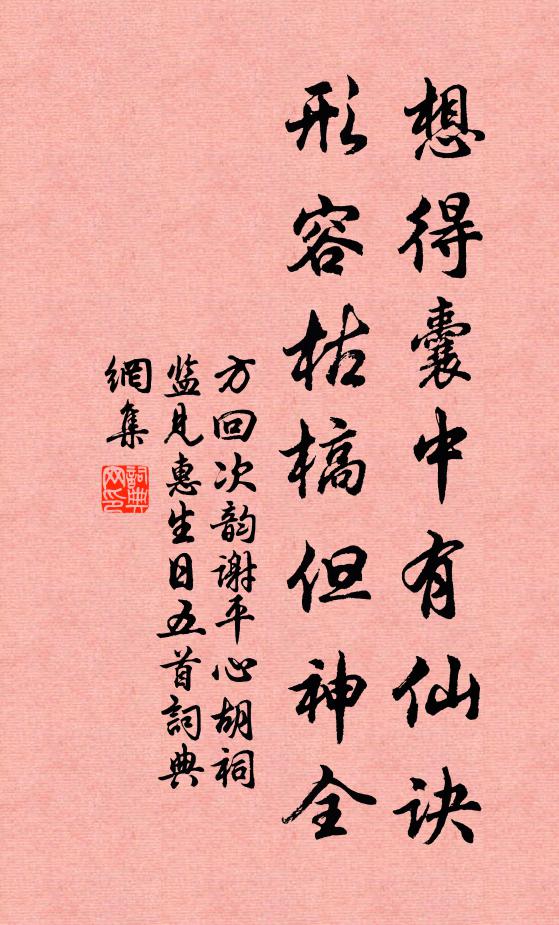 想得囊中有仙诀
形容枯槁但神全
方回次韵谢平心胡祠
监见惠生日五首詞典
網集
詞典
网印